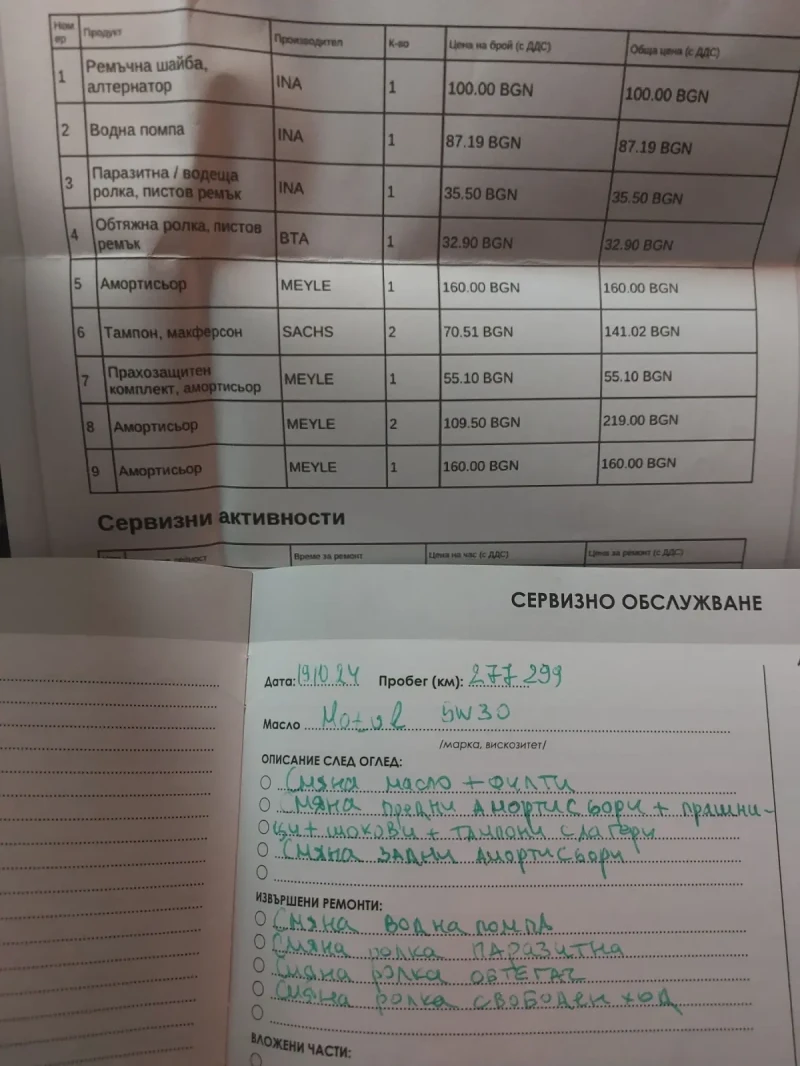 Ном ер Продукт Производител К-во Цена на брой (с ДДС) Обща цена (с ДДС)
1 Ремъчна шайба, алтернатор INA 1 100.00 BGN 100.00 BGN
2 Водна помпа INA 1 87.19 BGN 87.19 BGN
3 Паразитна / водеща ролка, пистов ремък INA 1 35.50 BGN 35.50 BGN
4 Обтяжна ролка, пистов ремък BTA 1 32.90 BGN 32.90 BGN
5 Амортисьор MEYLE 1 160.00 BGN 160.00 BGN
6 Тампон, макферсон SACHS 2 70.51 BGN 141.02 BGN
7 Прахозащитен комплект, амортисьор MEYLE 1 55.10 BGN 55.10 BGN
8 Амортисьор MEYLE 2 109.50 BGN 219.00 BGN
9 Амортисьор MEYLE 1 160.00 BGN 160.00 BGN
Сервизни активности
Време за ремонт Цена на час (с ДДС) Цена за ремонт (с ДДС)
СЕРВИЗНО ОБСЛУЖВАНЕ
Дата: 191024 Пробег (км): 277299
Масло Motul 5W30
/марка, вискозитет/
ОПИСАНИЕ СЛЕД ОГЛЕД:
Смяна масло + филти
смяна предни амортисьори + прашни-
ци + шокови + тампони с лагери
Смяна задни амортисьори
ИЗВЪРШЕНИ РЕМОНТИ:
Смяна водна помпа
Смяна ролка паразитна
Смяна ролка обтегач
Смяна ролка свободен ход
ВЛОЖЕНИ ЧАСТИ: